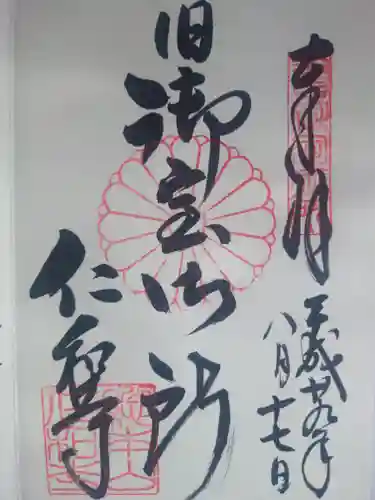 奉拝
平成廿九年
八月十七日
旧御室御所
仁和寺